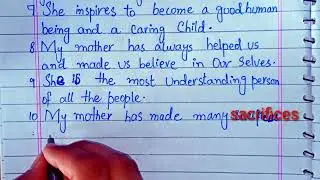 7 She inspires to become a good human
being and a caring Child.
8 My mother has always helped us
and made us believe in Our Selves.
9 She is the most understanding person
of all the people.
10 My mother has made many sacrifices